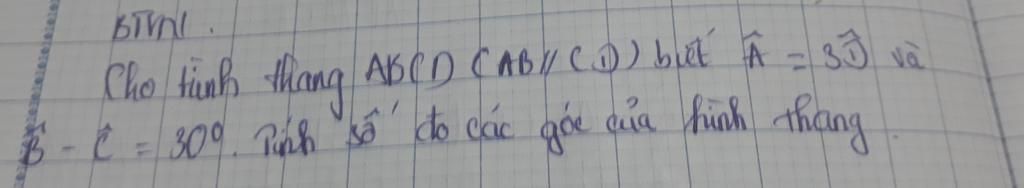 BTVN1.
Cho hình thang ABCD (AB // CD) biết Â = 3D̂ và
B̂ - Ĉ = 30⁰. Tính số đo các góc của hình thang.